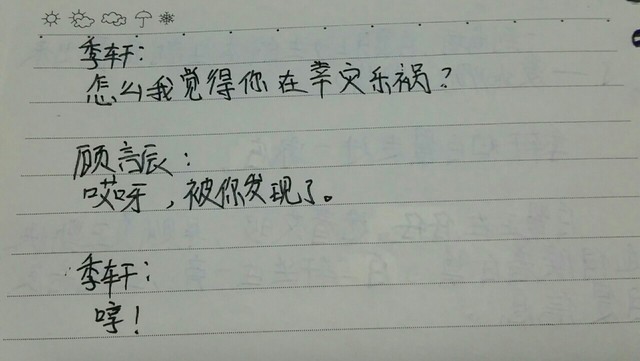 季轩：
怎么我觉得你在幸灾乐祸？
顾言辰：
哎呀，被你发现了。
季轩：
哼！